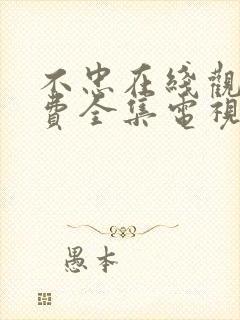 不忠在綫觀
費全集電視
愚本